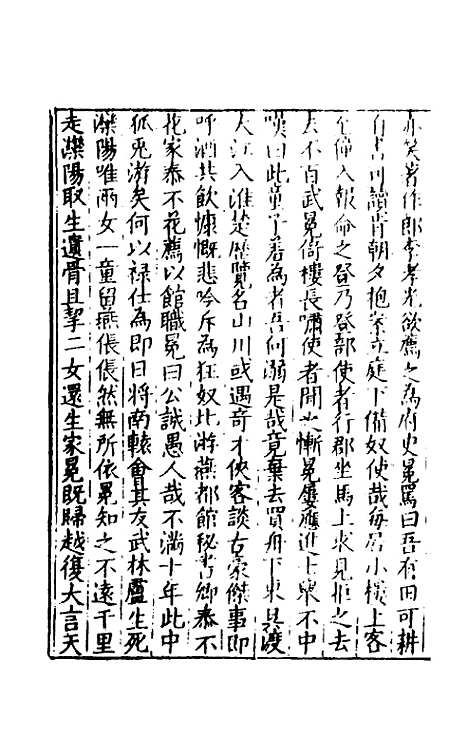 亦笑著作郎李孝光欲薦之為府史冕罵曰吾有田可耕
有書可讀肯朝夕抱案立庭下備奴使哉每居小樓上客
至僮入報命之登乃登部使者行郡坐馬上求見拒之去
去不百武冕倚樓長嘯使者聞之慚冕屢應進士舉不中
嘆曰此童子羞為者吾何溺是哉竟棄去買舟下東吳渡
大江入淮楚歷覽名山川或遇奇才俠客談古豪傑事即
呼酒共飲慷慨悲吟斥為狂奴北游燕都館秘書卿泰不
花家泰不花薦以館職冕曰公誠愚人哉不滿十年此中
狐兎游矣何以祿仕為即日將南轅會其友武林盧生死
灤陽唯兩女一童留燕倀倀然無所依冕知之不遠千里
走灤陽取生遺骨且挈二女還生家冕既歸越復大言天